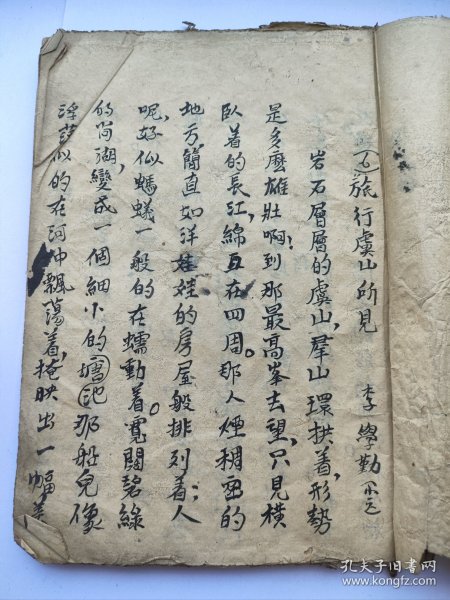 (五)旅行虞山所見　李學勤
岩石層層的虞山,羣山環拱着,形勢
是多麼雄壯啊;到那最高峯去望,只見橫
臥着的長江,綿亙在四周。那人煙稠密的
地方簡直如洋娃娃的房屋般排列着;人
呢,好似螞蟻一般的在蠕動着。寬闊碧綠
的尚湖,變成一個細小的池那船兒像
浮萍似的在河中飄蕩着,掩映出一幅美
孔夫子旧书网
www.kongfz.com